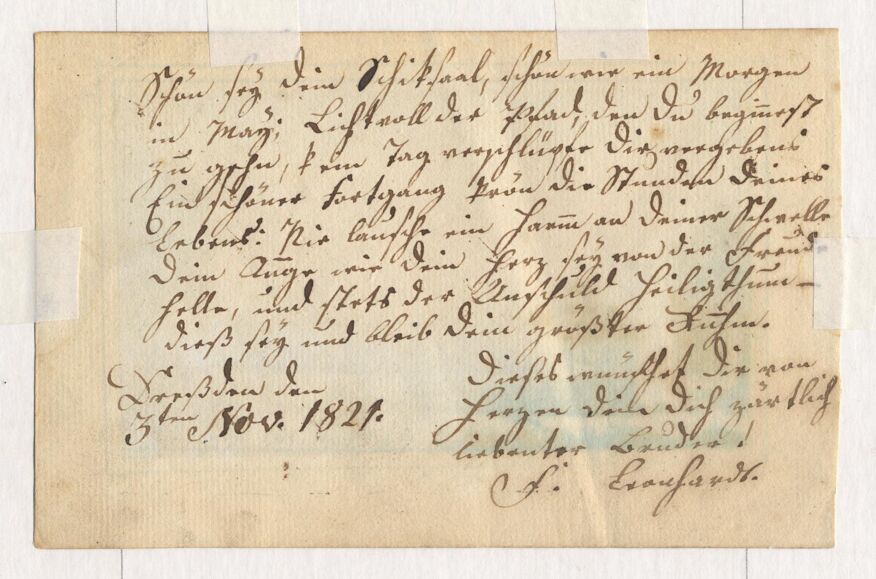 Schön sey dein Schiksaal, schön wie ein Morgen
im May; Lichtvoll der Pfad, den Du begin̄est
zu gehn, kein Tag verschlüpfe Dir vergebens
Ein schöner Fortgang krön die Stunden Deines
Lebens: Nie lausche ein Harm̄ an Deiner Schwelle
Dein Auge wie Dein Herz sey von der Freude
helle, und stets der Unschuld Heiligthum–
dieß sey und bleib Dein größter Ruhm.
Dreßden den
3ten Nov. 1821.
Dieses wünschet Dir von
Herzen Dein Dich zärtlich
liebenter Bruder!
F. Leonhardt.